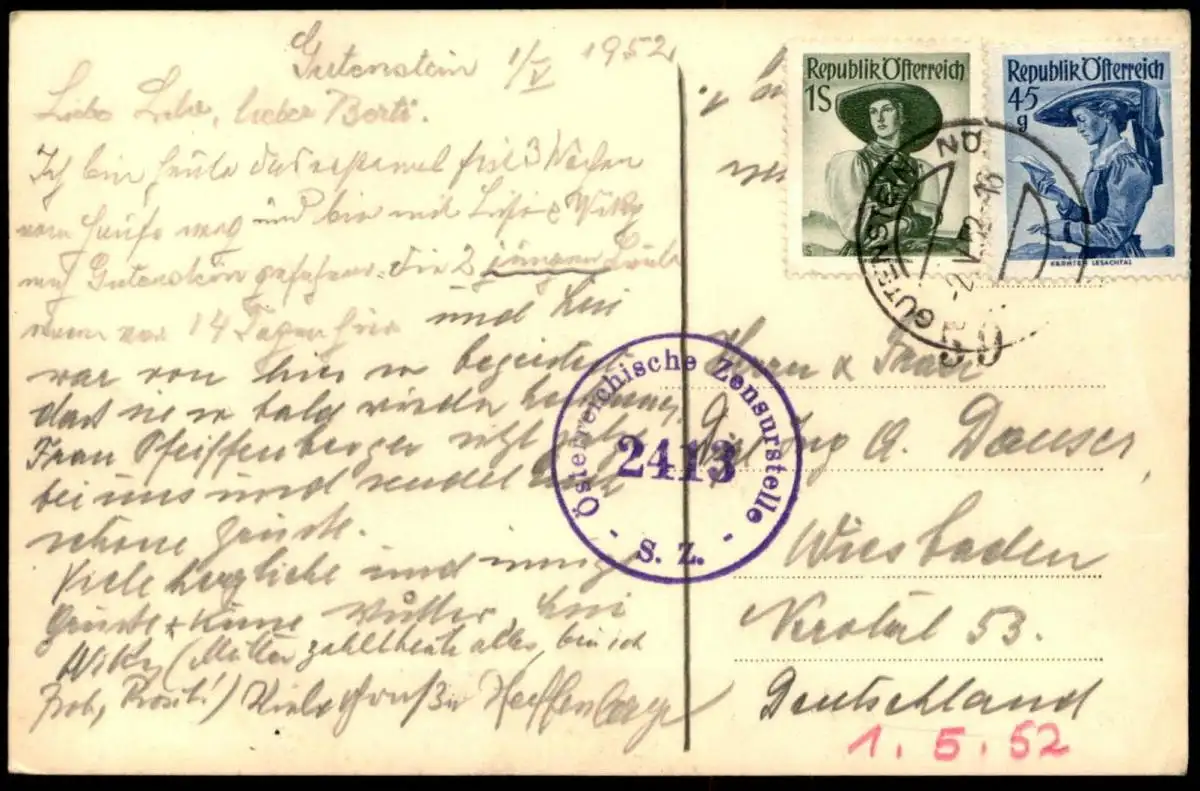 Gutenstein 1/V 1952
Liebe Lilie, lieber Berti.
Ich bin heute das erstemal seit 3 Wochen
vom Hause weg und bin mit Lisi & Wiky
nach Gutenstein gefahren. die 2 jungen Leute
waren vor 14 Tagen hier und Lisi
war von hier so begeistert
dass sie so balg wieder
Frau Pfeiffenberger sitzt
bei uns und sendet auch
schöne Grüsse.
Viele herzliche und innige
Grüsse + Küsse Mutter, Lisi
Wiky (Mutter zahlt heute alles, bin ich
froh, Prosit!) Viele Grüße Pfeiffenberger
Republik Österreich
1S
Republik Österreich
45
g
KÄRNTEN LESACHTAL
GUTENSTEIN NÖ
-2.V.52-16
50
Österreichische Zensurstelle
2413
- S. Z. -
Herrn & Frau
A. Dauser,
Wiesbaden
Nerotal 53.
Deutschland
1. 5. 52